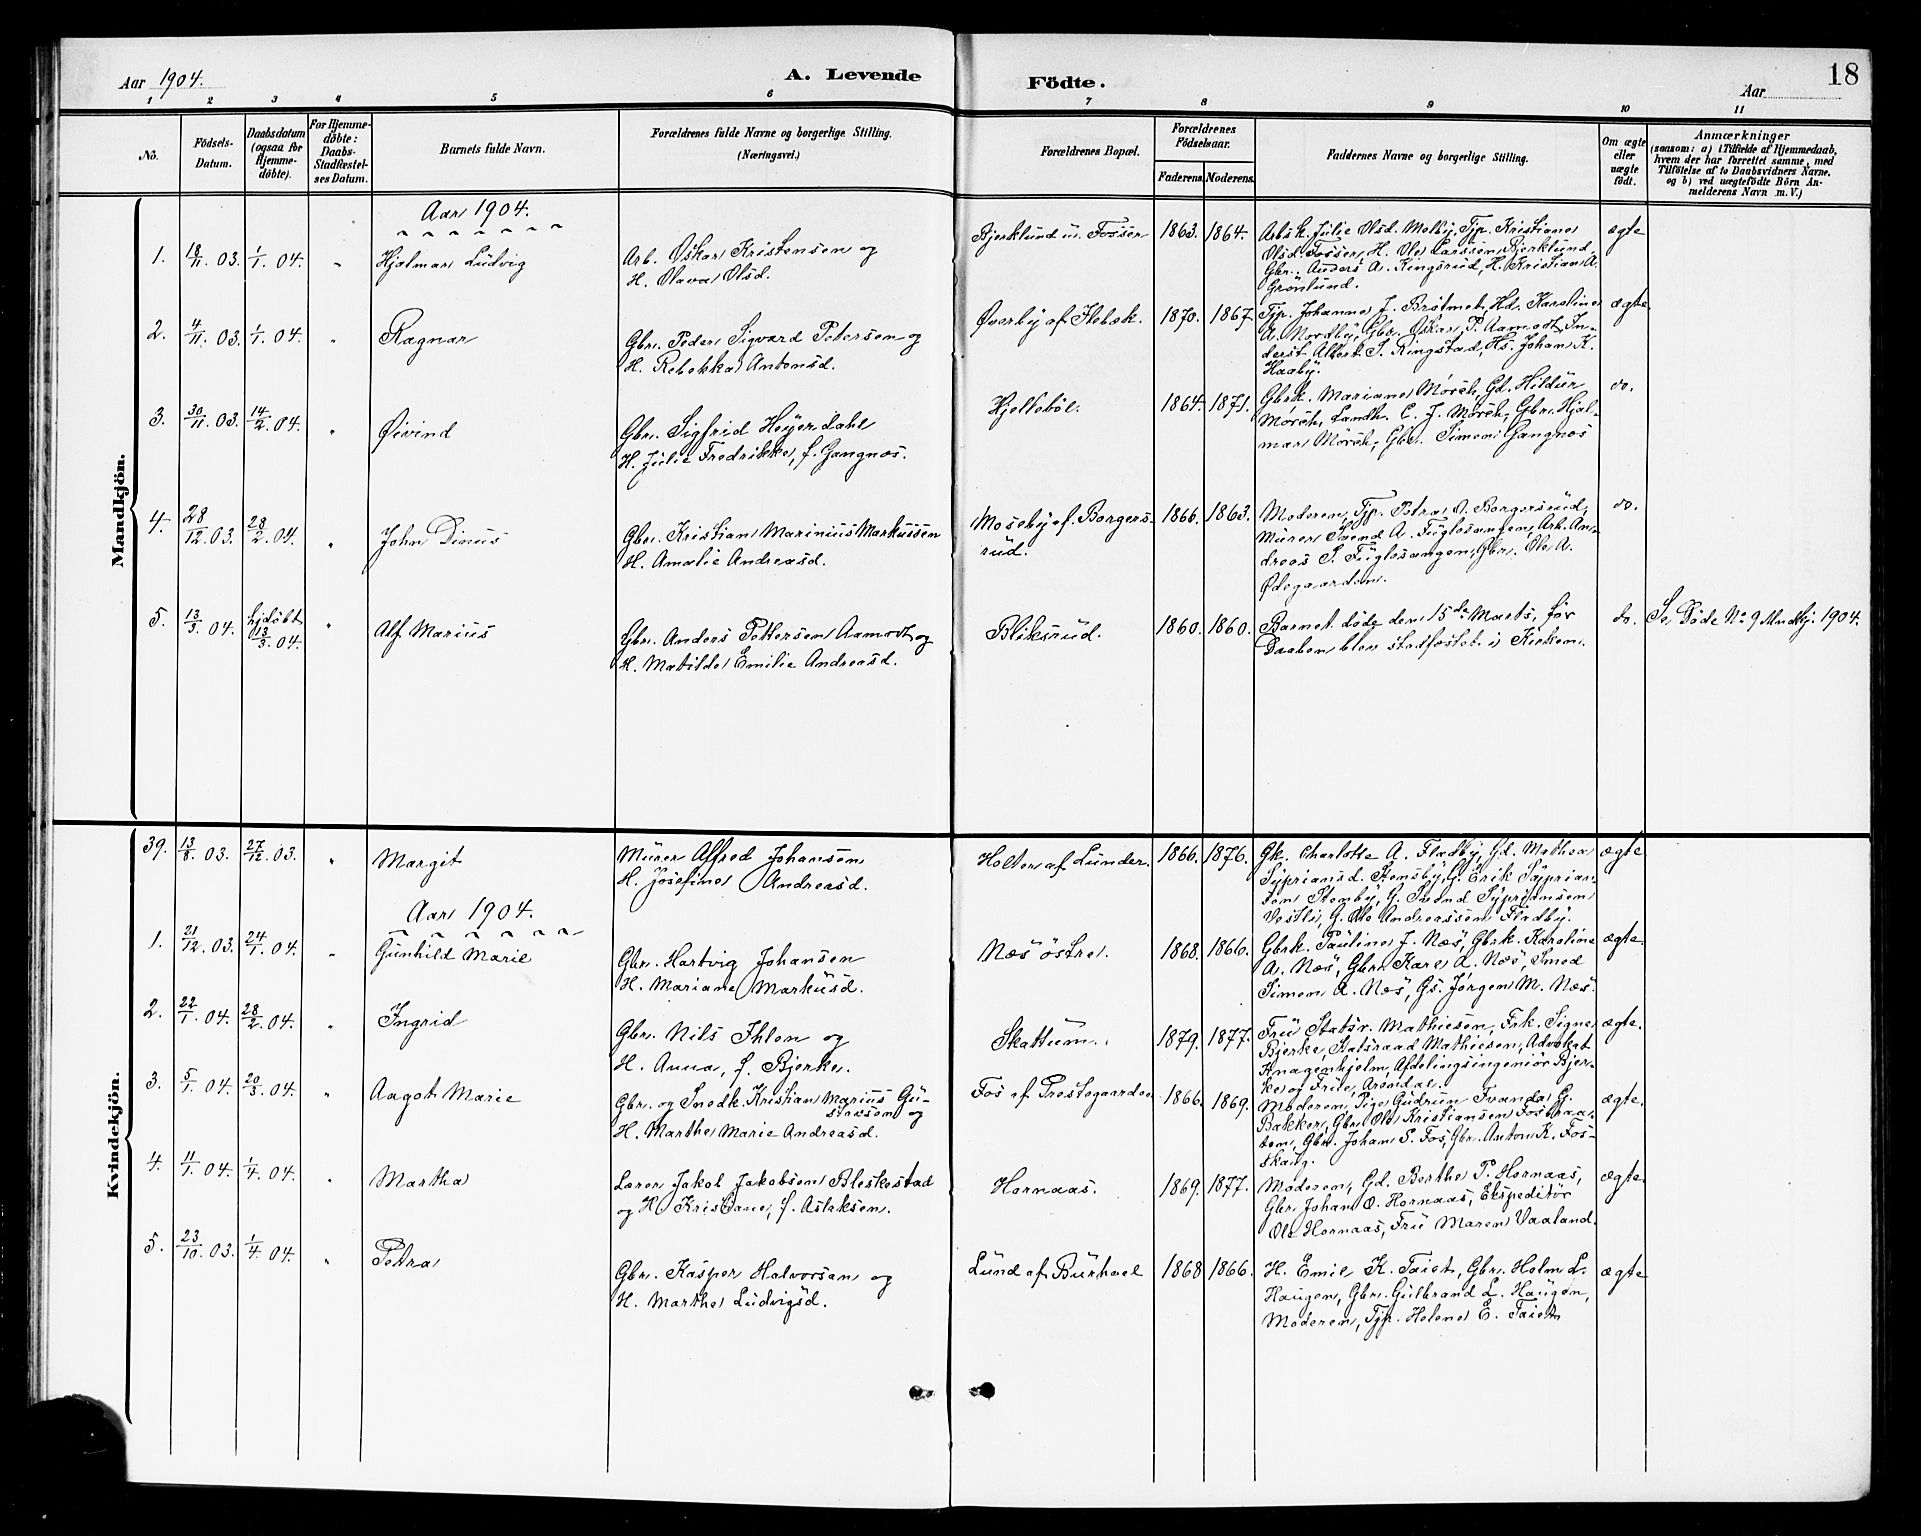 Aar 1904.
A. Levende
Födte.
Aar
18
1 2 3 4 5 6 7 8 9 10 11
No.
Födsels-
Datum.
Daabsdatum
(ogsaa for
Hjemme-
döbte).
For Hjemme-
döbte:
Daabs-
Stadfæstel-
ses Datum.
Barnets fulde Navn.
Forældrenes fulde Navne og borgerlige Stilling.
(Næringsvei.)
Forældrenes Bopæl.
Forældrenes
Födselsaar.
Faderens.
Moderens.
Faddernes Navne og borgerlige Stilling.
Om ægte
eller
uægte
födt.
Anmærkninger
(saasom: a) i Tilfælde af Hjemmedaab,
hvem der har forrettet samme, med
Tilföielse af to Daabsvidners Navne.
og b) ved uægtefödte Börn An-
melderens Navn m. V.)
Mandkjön.
Aar 1904.
1. 18/11 03. 1/1 04. " Hjalmar Ludvig
Arb. Oskar Kristensen og
H. Olava Olsd.
Bjerklund u. Fosser 1863. 1864.
Arbsk. Julie Olsd. Molby, Tjp. Kristiane
Olsd. Fosser, H. Ole Larssen Bjerklund,
Gbr. Anders A. Kingsrud, H. Kristian A.
Grönlund.
ægte
2. 4/11 03. 1/1 04. " Ragnar
Gbr. Peder Sigvard Petersen og
H. Rebekka Antonsd.
Øverby af Flebæk. 1870. 1867.
Tjp. Johanne J. Bråtmet, Hd. Karoline
A. Nordby, Gbr. Oskar P. Aamodt, In-
derst Albert S. Ringstad, Hs. Johan K.
Haaby.
ægte
3. 30/11 03. 14/2 04. " Øivind
Gbr. Sigfrid Heyerdahl
H. Julie Fredrikke, f. Gangnæs.
Hjelleböl. 1864. 1871.
Gbrk. Mariane Mörch, Gd. Hildur
Mörch, Landh. C. J. Mörch, Gbr. Hjal-
mar Mörch, Gbr. Simen Gangnæs
do.
4. 28/12 03. 28/2 04. " John Dinus
Gbr. Kristian Marinius Markussen
H. Amalie Andreasd.
Moseby af. Borgers-
rud. 1866. 1863.
Moderen, Tjp. Petra O. Borgersrud,
Murer Svend A. Fuglesangen, Arb. An-
dreas S. Fuglesangen, Gbr. Ole A.
Ødegaarden.
do.
5. 13/3 04. hjdöbt
13/3 04. " Alf Marius
Gbr. Anders Pettersen Aamodt og
H. Matilde Emilie Andreasd.
Bliksrud. 1860. 1860.
Barnet döde den 15de Marts, för
Daaben blev stadfæstet i Kirken.
do. Se, Döde No 9 Mndkj. 1904.
Kvindekjön.
39. 13/8 03. 27/12 03. " Margit
Murer Alfred Johansen
H. Josefine Andreasd.
Holter af Lunder. 1866. 1876.
Gk. Charlotte A. Fladby, Gd. Mathea
Syprian­sd. Stensby, G. Erik Syprian-
sen Stenby, G. Svend Sypriansen
Vestli, G. Ole Andreassen Fladby.
ægte
Aar 1904.
1. 21/12 03. 24/1 04. " Gunhild Marie
Gbr. Hartvig Johansen
H. Mariane Markusd.
Næs östre. 1868. 1866.
Gbrk. Pauline J. Næs, Gbrk. Karoline
A. Næs, Gbr. Kare A. Næs, Smed
Simen A. Næs, Gs. Jörgen M. Næs.
ægte.
2. 22/1 04. 28/2 04. " Ingrid
Gbr. Nils Ihlen og
H. Anna, f. Bjerke.
Skattum. 1879. 1877.
Fru Statsr. Mathiesen, Frk. Signe
Bjerke, Statsraad Mathiesen, Advokat
Knagenhjelm, Afdelingsingeniör Bjer-
ke og Frue, Arendal.
ægte.
3. 5/1 04. 20/3 04. " Aagot Marie
Gbr. og Snedk. Kristian Marius Gu-
stavsen og
H. Marthe Marie Andreasd.
Fos af Prestegaarden 1866. 1869.
Moderen, Pige Gudrun Tvanda G.
Bakker, Gbr. Ole Kristiansen Fosbraa-
ten, Gbr. Johan S. Fos, Gbr. Anton K. Fos-
skaug.
ægte.
4. 11/1 04. 1/4 04. " Martha
Lærer Jakob Jakobsen Bleskestad
og H. Kristiane, f. Aslaksen.
Hornaas. 1869. 1877.
Moderen, Gd. Berthe P. Hornaas,
Gbr. Johan O. Hornaas, Ekspeditör
Ole Hornaas, Fru Maren Vaaland.
ægte.
5. 23/10 03. 1/4 04. " Petra
Gbr. Kasper Halvorsen og
H. Marthe Ludvigsd.
Lund af Burhoel 1868 1866.
H. Emil K. Taiet, Gbr. Holm L.
Haugen, Gbr. Gulbrand L. Haugen,
Moderen, Tjp. Helene E. Taiet
ægte